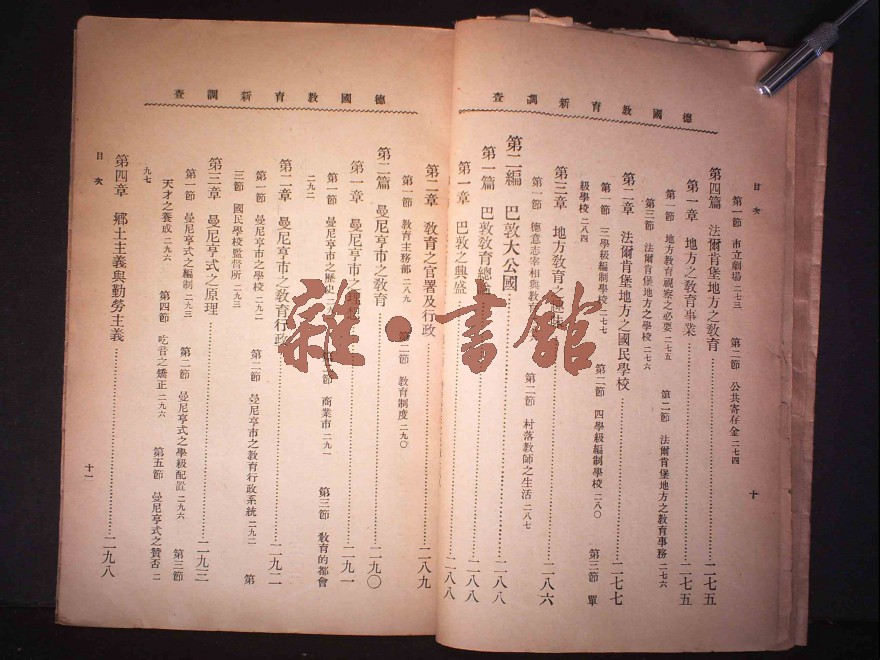 德國教育新調查
目次
第一節 市立劇場二七三 第二節 公共寄存金二七四
第四篇 法爾肯堡地方之教育 二七五
第一章 地方之教育事業 二七五
第一節 地方教育視察之必要二七五 第二節 法爾肯堡地方之教育事務二七六
第三節 法爾肯堡地方之學校二七六
第二章 法爾肯堡地方之國民學校 二七七
第一節 三學級編制學校二七七 第二節 四學級編制學校二八〇 第三節 單
級學校二八四
第三章 地方教育之 二八六
第一節 德意志宰相與教 第二節 村落教師之生活二八七
第二編 巴敦大公國 二八八
第一篇 巴敦教育總 二八八
第一章 巴敦之興盛 二八八
十
德國教育新調查
第二章 教育之官署及行政 二八九
第一節 教育主務部二八九 第二節 教育制度二九〇
第二篇 曼尼亨市之教育 二九〇
第一章 曼尼亨市之 二九一
第一節 曼尼亨市之歷史 節 商業市二九一 第三節 教育的都會
二九二
第二章 曼尼亨市之教育行政 二九二
第一節 曼尼亨市之學校二九二 第二節 曼尼亨市之教育行政系統二九二 第
三節 國民學校監督所二九三
第三章 曼尼亨式之原理 二九三
第一節 曼尼亨式之編制二九三 第二節 曼尼亨式之學級配置二九六 第三節
天才之養成二九六 第四節 吃音之矯正二九六 第五節 曼尼亨式之贊否二
九七
第四章 鄉土主義與勤勞主義 二九八
目次
十一
雜·書館